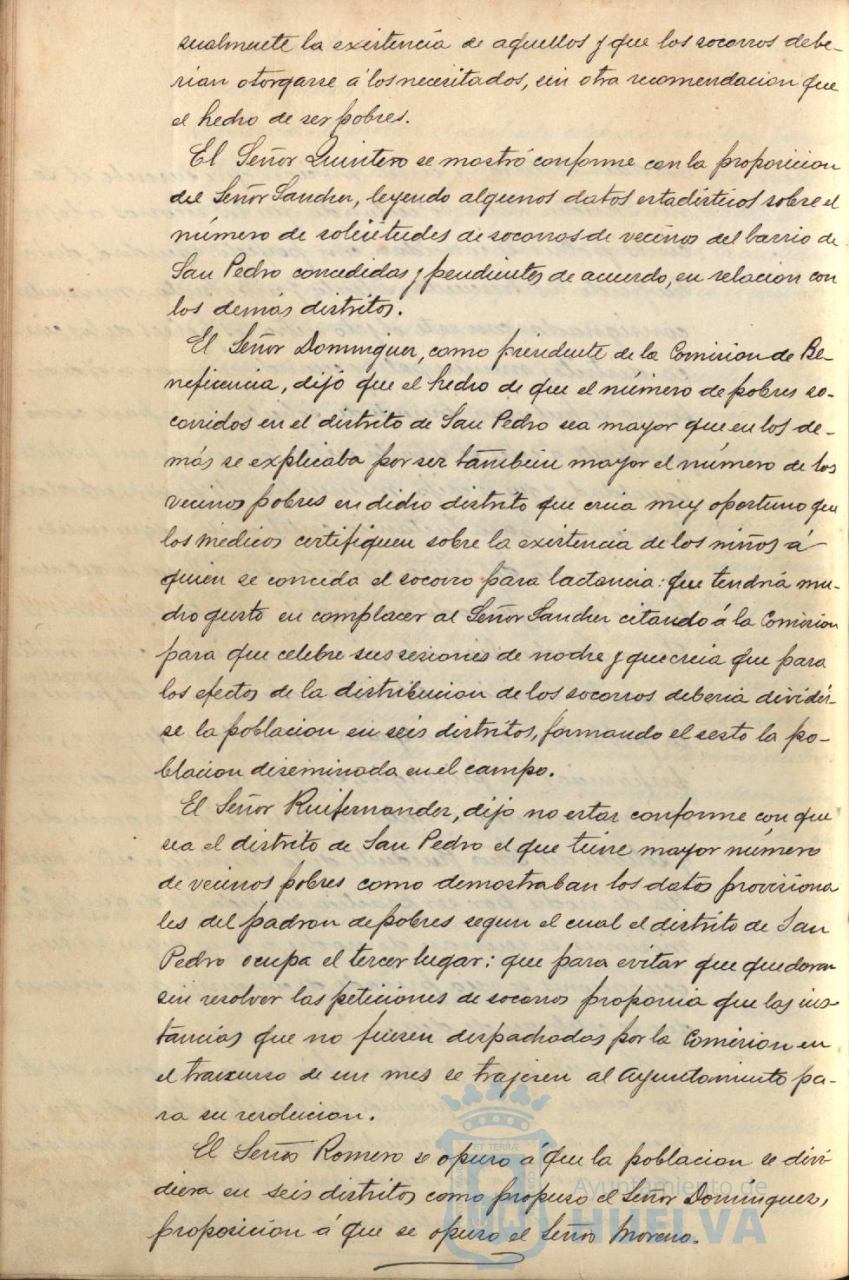 sualmente la existencia de aquellos y que los socorros debe-
rian otorgarse á los necesitados, sin otra recomendacion que
el hecho de ser pobres.
El Señor Quintero se mostró conforme con la proposicion
del Señor Sanchez, leyendo algunos datos estadisticos sobre el
número de solicitudes de socorros de vecinos del barrio de
San Pedro concedidas y pendientes de acuerdo, en relacion con
los demás distritos.
El Señor Dominguez, como presidente de la Comision de Be-
neficencia, dijó que el hecho de que el número de pobres so-
corridos en el distrito de San Pedro sea mayor que en los de-
más se explicaba por ser tambien mayor el número de los
vecinos pobres en dicho distrito que creia muy oportuno que
los medicos certifiquen sobre la existencia de los niños á
quien se conceda el socorro para lactancia: que tendria mu-
cho gusto en complacer al Señor Sanchez citando á la Comision
para que celebre sus sesiones de noche y que creia que para
los efectos de la distribucion de los socorros deberia dividir-
se la poblacion en seis distritos, formando el sesto la po-
blacion diseminada en el campo.
El Señor Ruifernandez, dijo no estar conforme con que
sea el distrito de San Pedro el que tiene mayor número
de vecinos pobres como demostraban los datos provisiona
les del padron de pobres segun el cual el distrito de San
Pedro ocupa el tercer lugar: que para evitar que quedaran
sin resolver las peticiones de socorros proponia que las ins-
tancias que no fuesen despachadas por la Comision en
el trascurso de un mes se trajesen al Ayuntamiento pa-
ra su resolucion.
El Señor Romero se opuso á que la poblacion se divi-
diera en seis distritos como propuso el Señor Dominguez,
proposicion á que se opuso el Señor Moreno.
Ayuntamiento de
HUELVA